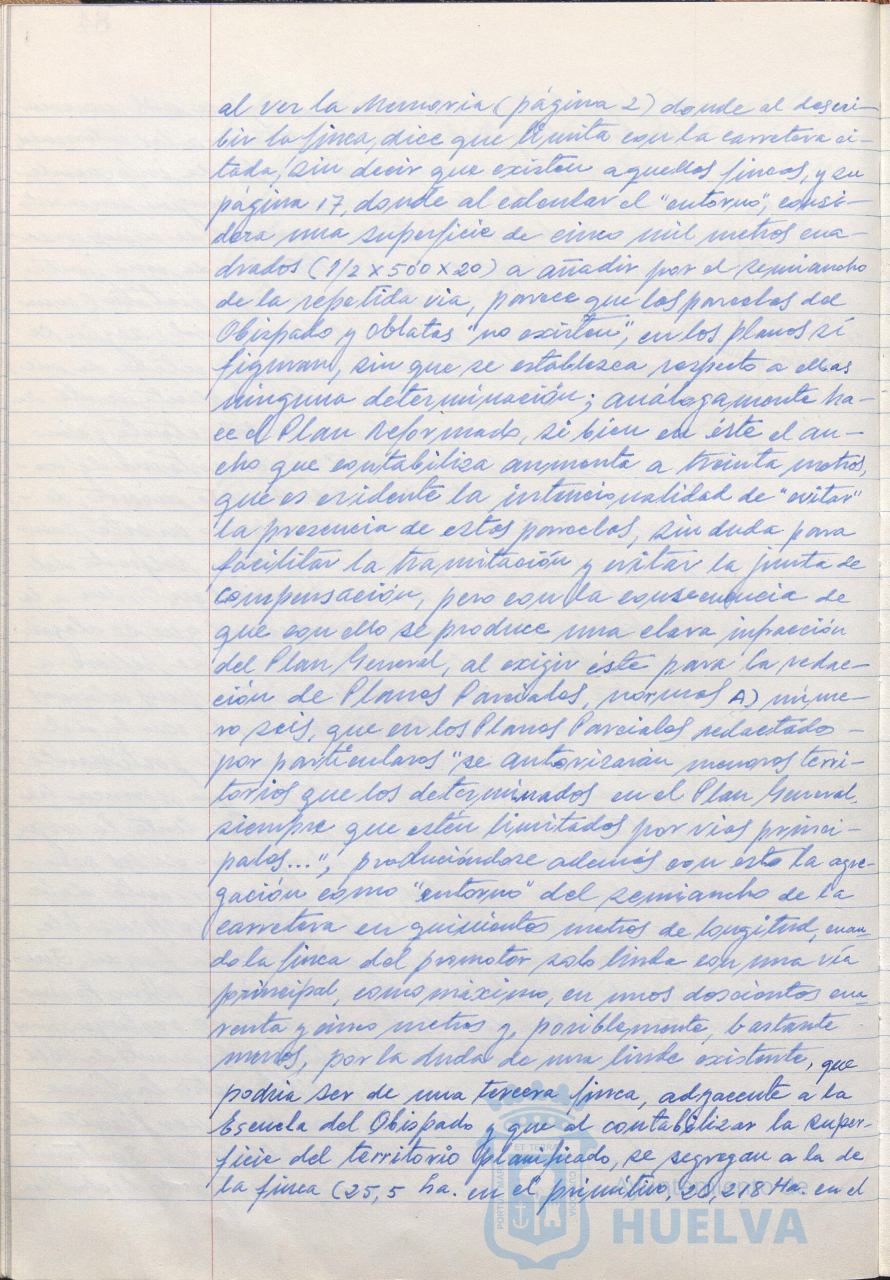 al ver la Memoria (página 2) donde al descri-
bir la finca, dice que limita con la carretera ci-
tada, sin decir que existen aquellas fincas, y su
página 17, donde al calcular el "entorno", consi-
dera una superficie de cinco mil metros cua-
drados (1/2 x 500 x 20) a añadir por el semiancho
de la repetida via, parece que las parcelas del
Obispado y Oblatas "no existen", en los planos sí
figuran, sin que se establezca respecto a ellas
ninguna determinación; análogamente ha-
ce el Plan Reformado, si bien en éste el an-
cho que contabiliza aumenta a treinta metros,
que es evidente la intencionalidad de "evitar"
la presencia de estas parcelas, sin duda para
facilitar la tramitación y evitar la junta de
compensación, pero con la consecuencia de
que con ello se produce una clara infracción
del Plan General, al exigir éste para la redac-
ción de Planos Parciales, normas A) núme-
ro seis, que en los Planos Parciales redactado -
por particulares "se autorizarán menores terri-
torios que los determinados en el Plan General,
siempre que estén limitados por vias princi-
pales...", produciéndose además con esto la agre-
gación como "entorno" del semiancho de la
carretera en quinientos metros de longitud, cuan-
do la finca del promotor solo linda con una vía
principal, como máximo, en unos doscientos cua-
renta y cinco metros y, posiblemente, bastante
menos, por la duda de una linde existente, que
podria ser de una tercera finca, adyacente a la
Escuela del Obispado y que al contabilizar la super-
ficie del territorio planificado, se segregan a la de
la finca (25,5 Ha. en el primitivo, 20,218 Ha. en el
PORTUS MARIS ET TERRAE CUSTODIA
Ayuntamiento de
HUELVA